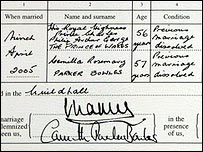 When married Name and surname Age Condition
Ninth His Royal Highness 56 Previous
Prince Charles years marriage
Philip Arthur George
April THE PRINCE OF WALES dissolved
2005 Camilla Rosemary 57 Previous
PARKER BOWLES years marriage
dissolved
Guildhall
marriage
lemnized in the
een us, presence of,
Camilla Parker Bowles